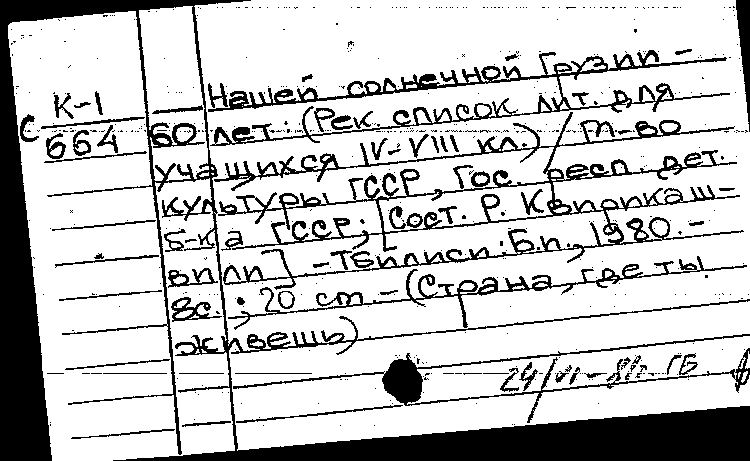 К-1
С 664
Нашей солнечной Грузии –
60 лет: (Рек. список лит. для
учащихся IV-VIII кл.) / М-во
культуры ГССР, Гос. респ. дет.
б-ка ГССР; [Сост. Р. Квирикаш-
вили] – Тбилиси: Б.и., 1980. –
8с.; 20 см. – (Страна, где ты
живешь)
24/VI – 81г. ГБ